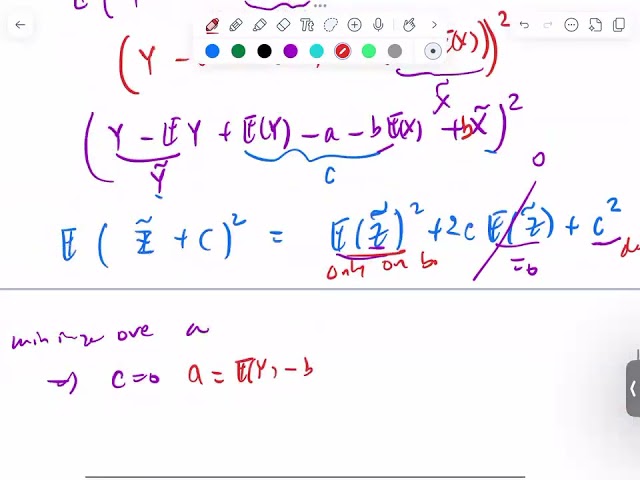 (Y - E(X)))^2
X̃
(Y - EY + E(Y) - a - bE(X) + bX̃)^2
Ỹ c
0
E(Z̃ + C)^2 = E(Z̃)^2 + 2c E(Z̃) + c^2
only on b =0
minimize over a
⇒ c=0 a = E(Y) - b